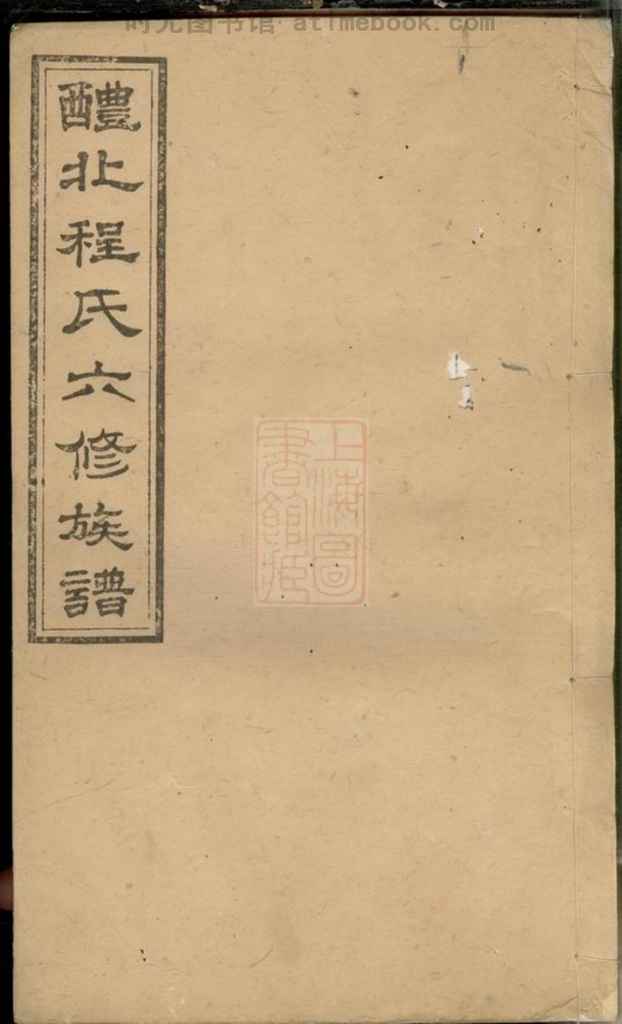 时光图书馆 atimebook.com
醴北程氏六修族譜
上海圖
書館藏